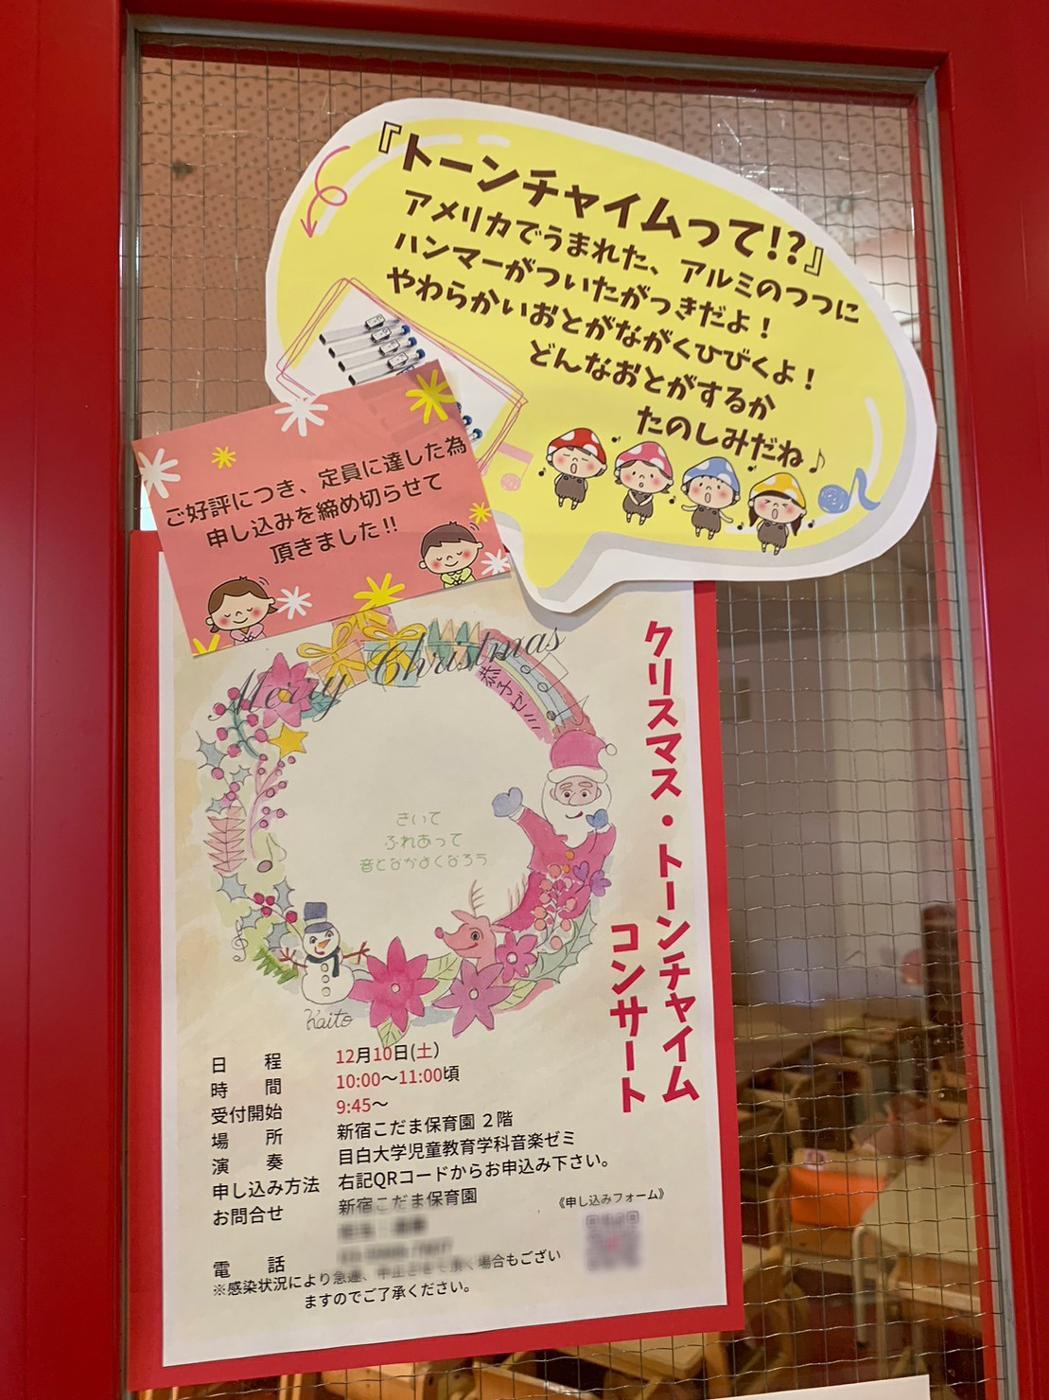 『トーンチャイムって!?』
アメリカでうまれた、アルミのつつに
ハンマーがついたがっきだよ！
やわらかいおとがながくひびくよ！
どんなおとがするか
たのしみだね♪
ご好評につき、定員に達した為
申し込みを締め切らせて
頂きました!!
Merry Christmas
きいて
ふれあって
音となかよくなろう
Kaito
クリスマス・トーンチャイム
コンサート
日程 12月10日(土)
時間 10:00～11:00頃
受付開始 9:45～
場所 新宿こだま保育園 2階
演奏 目白大学児童教育学科音楽ゼミ
申し込み方法 右記QRコードからお申込み下さい。
お問合せ 新宿こだま保育園
《申し込みフォーム》
電話
※感染状況により急遽、中止させて頂く場合もござい
ますのでご了承ください。